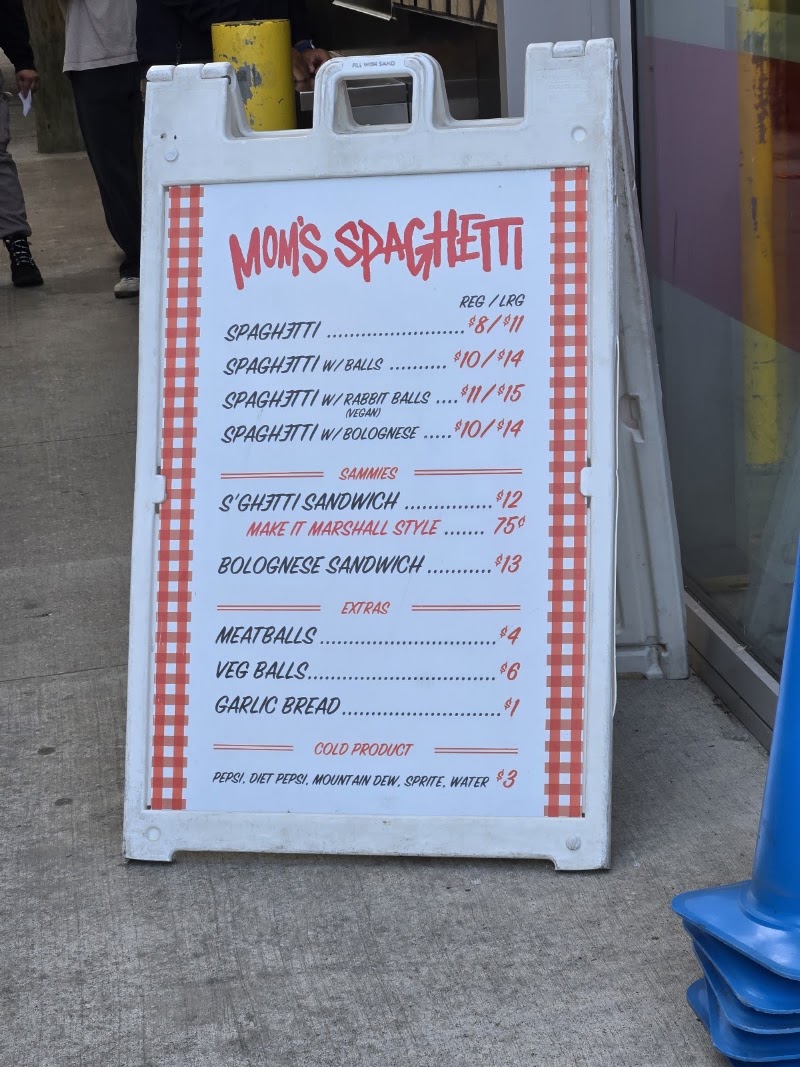 FILL WITH SAND
MOM'S SPAGHETTI
REG / LRG
SPAGHETTI ........................ $8/$11
SPAGHETTI W/ BALLS .......... $10/$14
SPAGHETTI W/ RABBIT BALLS .... $11/$15
(VEGAN)
SPAGHETTI W/ BOLOGNESE ..... $10/$14
SAMMIES
S'GHETTI SANDWICH ............... $12
MAKE IT MARSHALL STYLE ....... 75¢
BOLOGNESE SANDWICH ........... $13
EXTRAS
MEATBALLS ............................... $4
VEG BALLS................................. $6
GARLIC BREAD............................ $1
COLD PRODUCT
PEPSI, DIET PEPSI, MOUNTAIN DEW, SPRITE, WATER $3